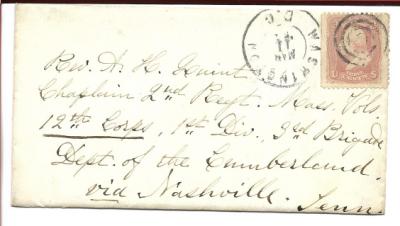 WASHINGTON
D.C.
MAR
11
U S
Rev. A. H. Quint,
Chaplain 2nd Regt. Mass. Vols.
12th Corps, 1st Div., 3d Brigade
Dept. of the Cumberland,
via Nashville.
Tenn.